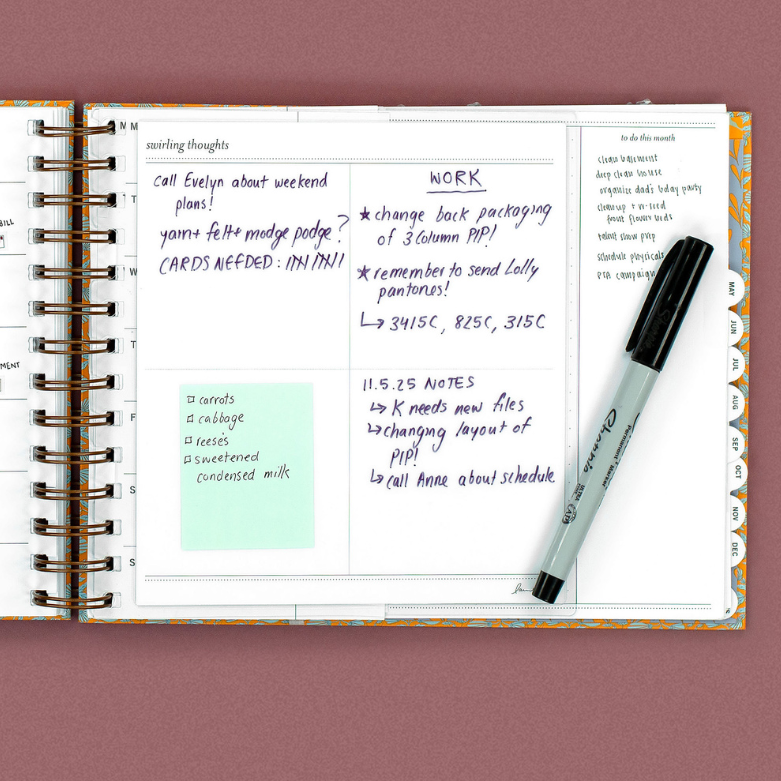 BILL
MENT
M
T
W
T
F
S
S
swirling thoughts
call Evelyn about weekend
plans!
yarn + felt + modge podge?
CARDS NEEDED:
WORK
★ change back packaging
of 3 Column PIP!
★ remember to send Lolly
pantones!
↳ 3415C, 825C, 315C
☐ carrots
☐ cabbage
☐ reese's
☐ sweetened
condensed milk
11.5.25 NOTES
↳ K needs new files
↳ changing layout of
PIP!
↳ call Anne about schedule
to do this month
clean basement
deep clean house
organize dad's bday party
clean up + re-seed
front flower beds
talent show prep
schedule physicals
PTA campaign
Sharpie
Permanent Marker
MAY
JUN
JUL
AUG
SEP
OCT
NOV
DEC